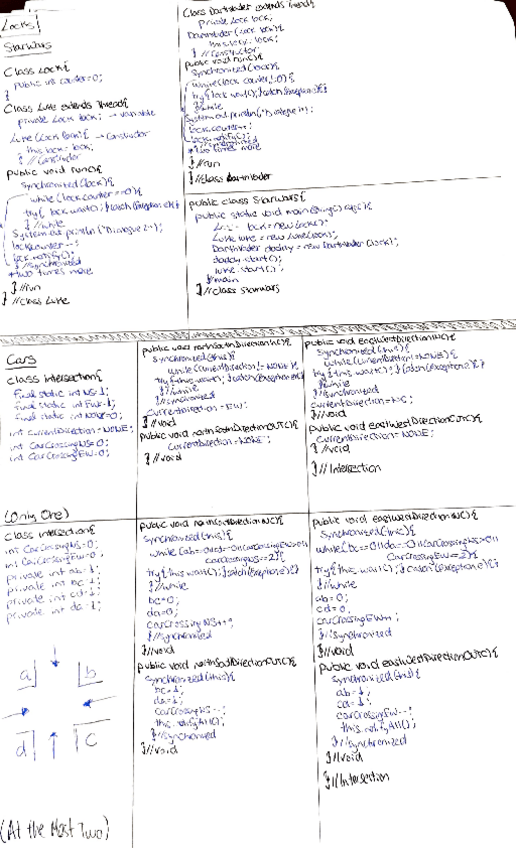 Locks
Starwars
Class Lock{
public int counter=0;
}
Class Luke extends Thread{
private Lock lock; → variable
Luke(Lock lock){ → Constructor
this.lock=lock;
} // Constructor
public void run(){
Synchronized(lock){
while(lock.counter==0){
try{ lock.wait(); } catch(Exception e){}
} // while
System.out.println("
lock.counter--;
lock.notify();
} // synchronized
* two times more
} // run
} // class Luke
Class DarthVader extends Thread{
private Lock lock;
DarthVader(Lock lock){
this.lock=lock;
} // Constructor
public void run(){
Synchronized(lock){
while(lock.counter
try{lock.wait();}catch(Exception e){}
} // while
System.out.println("
lock.counter++;
lock.notify();
} // synchronized
* two times more
} // run
} // class DarthVader
public class Starwars{
public static void main(
lock=new Lock();
Luke luke=new Luke(lock);
DarthVader daddy=new DarthVader(lock);
daddy.start();
luke.start();
} // main
} // class Starwars
Cars
class intersection{
final static int NS=1;
final static int EW=
final static int NONE=0;
int currentDirection=NONE;
int CarCrossingNS=0;
int CarCrossingEW=0;
(Only One)
public void northSouthDirectionIN(){
Synchronized(this){
while(currentDirection!=NONE){
try{this.wait();}catch(Exception e){}
} // while
} // synchronized
currentDirection=
} // void
public void northSouthDirectionOUT(){
currentDirection=NONE;
} // void
public void eastWestDirectionIN(){
Synchronized(this){
while(currentDirection!=NONE){
try{this.wait();}catch(Exception e){}
} // while
} // synchronized
currentDirection=
} // void
public void eastWestDirectionOUT(){
currentDirection=NONE;
} // void
} // Intersection
class intersection{
int CarCrossingNS=0;
int CarCrossingEW=0;
private int ab=1;
private int bc=1;
private int cd=1;
private int da=1;
a
b
d
c
(At the Most Two)
public void northSouthDirectionIN(){
Synchronized(this){
while(ab==0||cd==0||carCrossingEW>0||
carCrossingNS==2){
try{this.wait();}catch(Exception e){}
} // while
bc=0;
da=0;
carCrossingNS++;
} // synchronized
} // void
public void northSouthDirectionOUT(){
Synchronized(this){
bc=1;
da=1;
carCrossingNS--;
this.notifyAll();
} // synchronized
} // void
public void eastWestDirectionIN(){
Synchronized(this){
while(bc==0||da==0||CarCrossingNS>0||
carCrossingEW==2){
try{this.wait();}catch(Exception e){}
} // while
ab=0;
cd=0;
carCrossingEW++;
} // synchronized
} // void
public void eastWestDirectionOUT(){
Synchronized(this){
ab=1;
cd=1;
carCrossingEW--;
this.notifyAll();
} // synchronized
} // void
} // Intersection